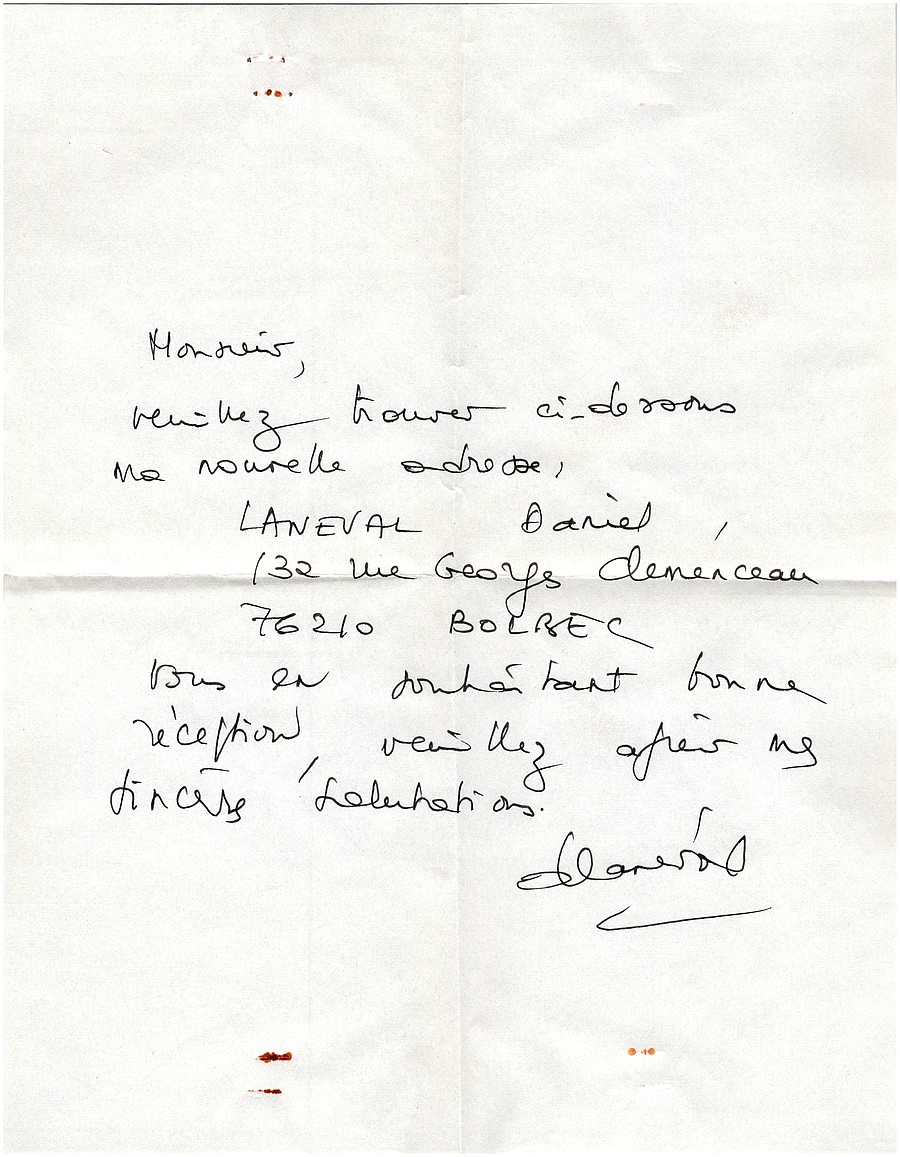 Monsieur,
veuillez trouver ci-dessous
ma nouvelle adresse,
LANEVAL Daniel,
132 rue Georges Clemenceau
76210 BOLBEC
Vous en souhaitant bonne
réception, veuillez agréer mes
sincères salutations.
dLaneval